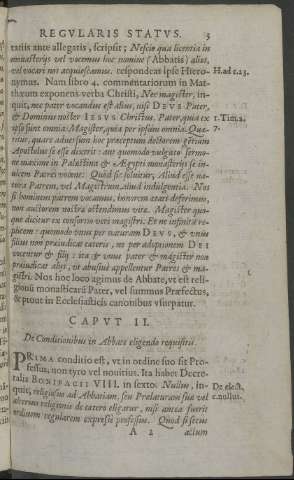 REGVLARIS STATVS. 3
tariis ante allegatis, scripsit; Nescio qua licentia in
monasterijs vel vocemus hoc nomine (Abbatis) alios,
vel vocari nos acquiescamus. respondeat ipse Hiero-
nymus. Nam libro 4. commentariorum in Mat-
thæum exponens verba Christi, Nec magister, in-
quit, nec pater vocandus est alius, nisi DEVS Pater,
& Dominus noster IESVS Christus. Pater, quia ex
ipso sunt omnia: Magister, quia per ipsum omnia. Quæ-
ritur, quare aduersum hoc præceptum doctorem gentium
Apostolus se esse dixerit: aut quomodo vulgato sermo-
ne maxime in Palæstina & Ægypti monasterijs se in-
uicem Patres vocent: Quod sic soluitur, Aliud esse na-
tura Patrem, vel Magistrum, aliud indulgentia. Nos
si hominem patrem vocamus, honorem ætati deferimus,
non auctorem nostræ ostendimus vitæ. Magister quo-
que dicitur ex consortio veri magistri. Et ne infinita re-
plicem: quomodo vnus per naturam DEVS, & vnus
filius non præiudicat cæteris, ne per adoptionem DEI
vocentur & filij: ita & vnus pater & magister non
præiudicat alijs, vt abusiuè appellentur Patres & ma-
gistri. Nos hoc loco agimus de Abbate, vt est reli-
giosus monasticus Pater, vel summus Præfectus,
& prout in Ecclesiasticis canonibus vsurpatur.
H. ad c. 23.
1. Tim. 2.
7.
CAPVT II.
De Conditionibus in Abbate eligendo requisitis.
PRIMA conditio est, vt in ordine suo sit Pro-
fessus, non tyro vel nouitius. Ita habet Decre-
talis BONIFACII VIII. in sexto. Nullus, in-
quit, religiosus ad Abbatiam, seu Prælaturam suæ vel
alterius religionis de cætero eligatur, nisi antea fuerit
ordinem regularem expressè professus. Quod si secus
De elect.
c. nullus.
A 2 actum